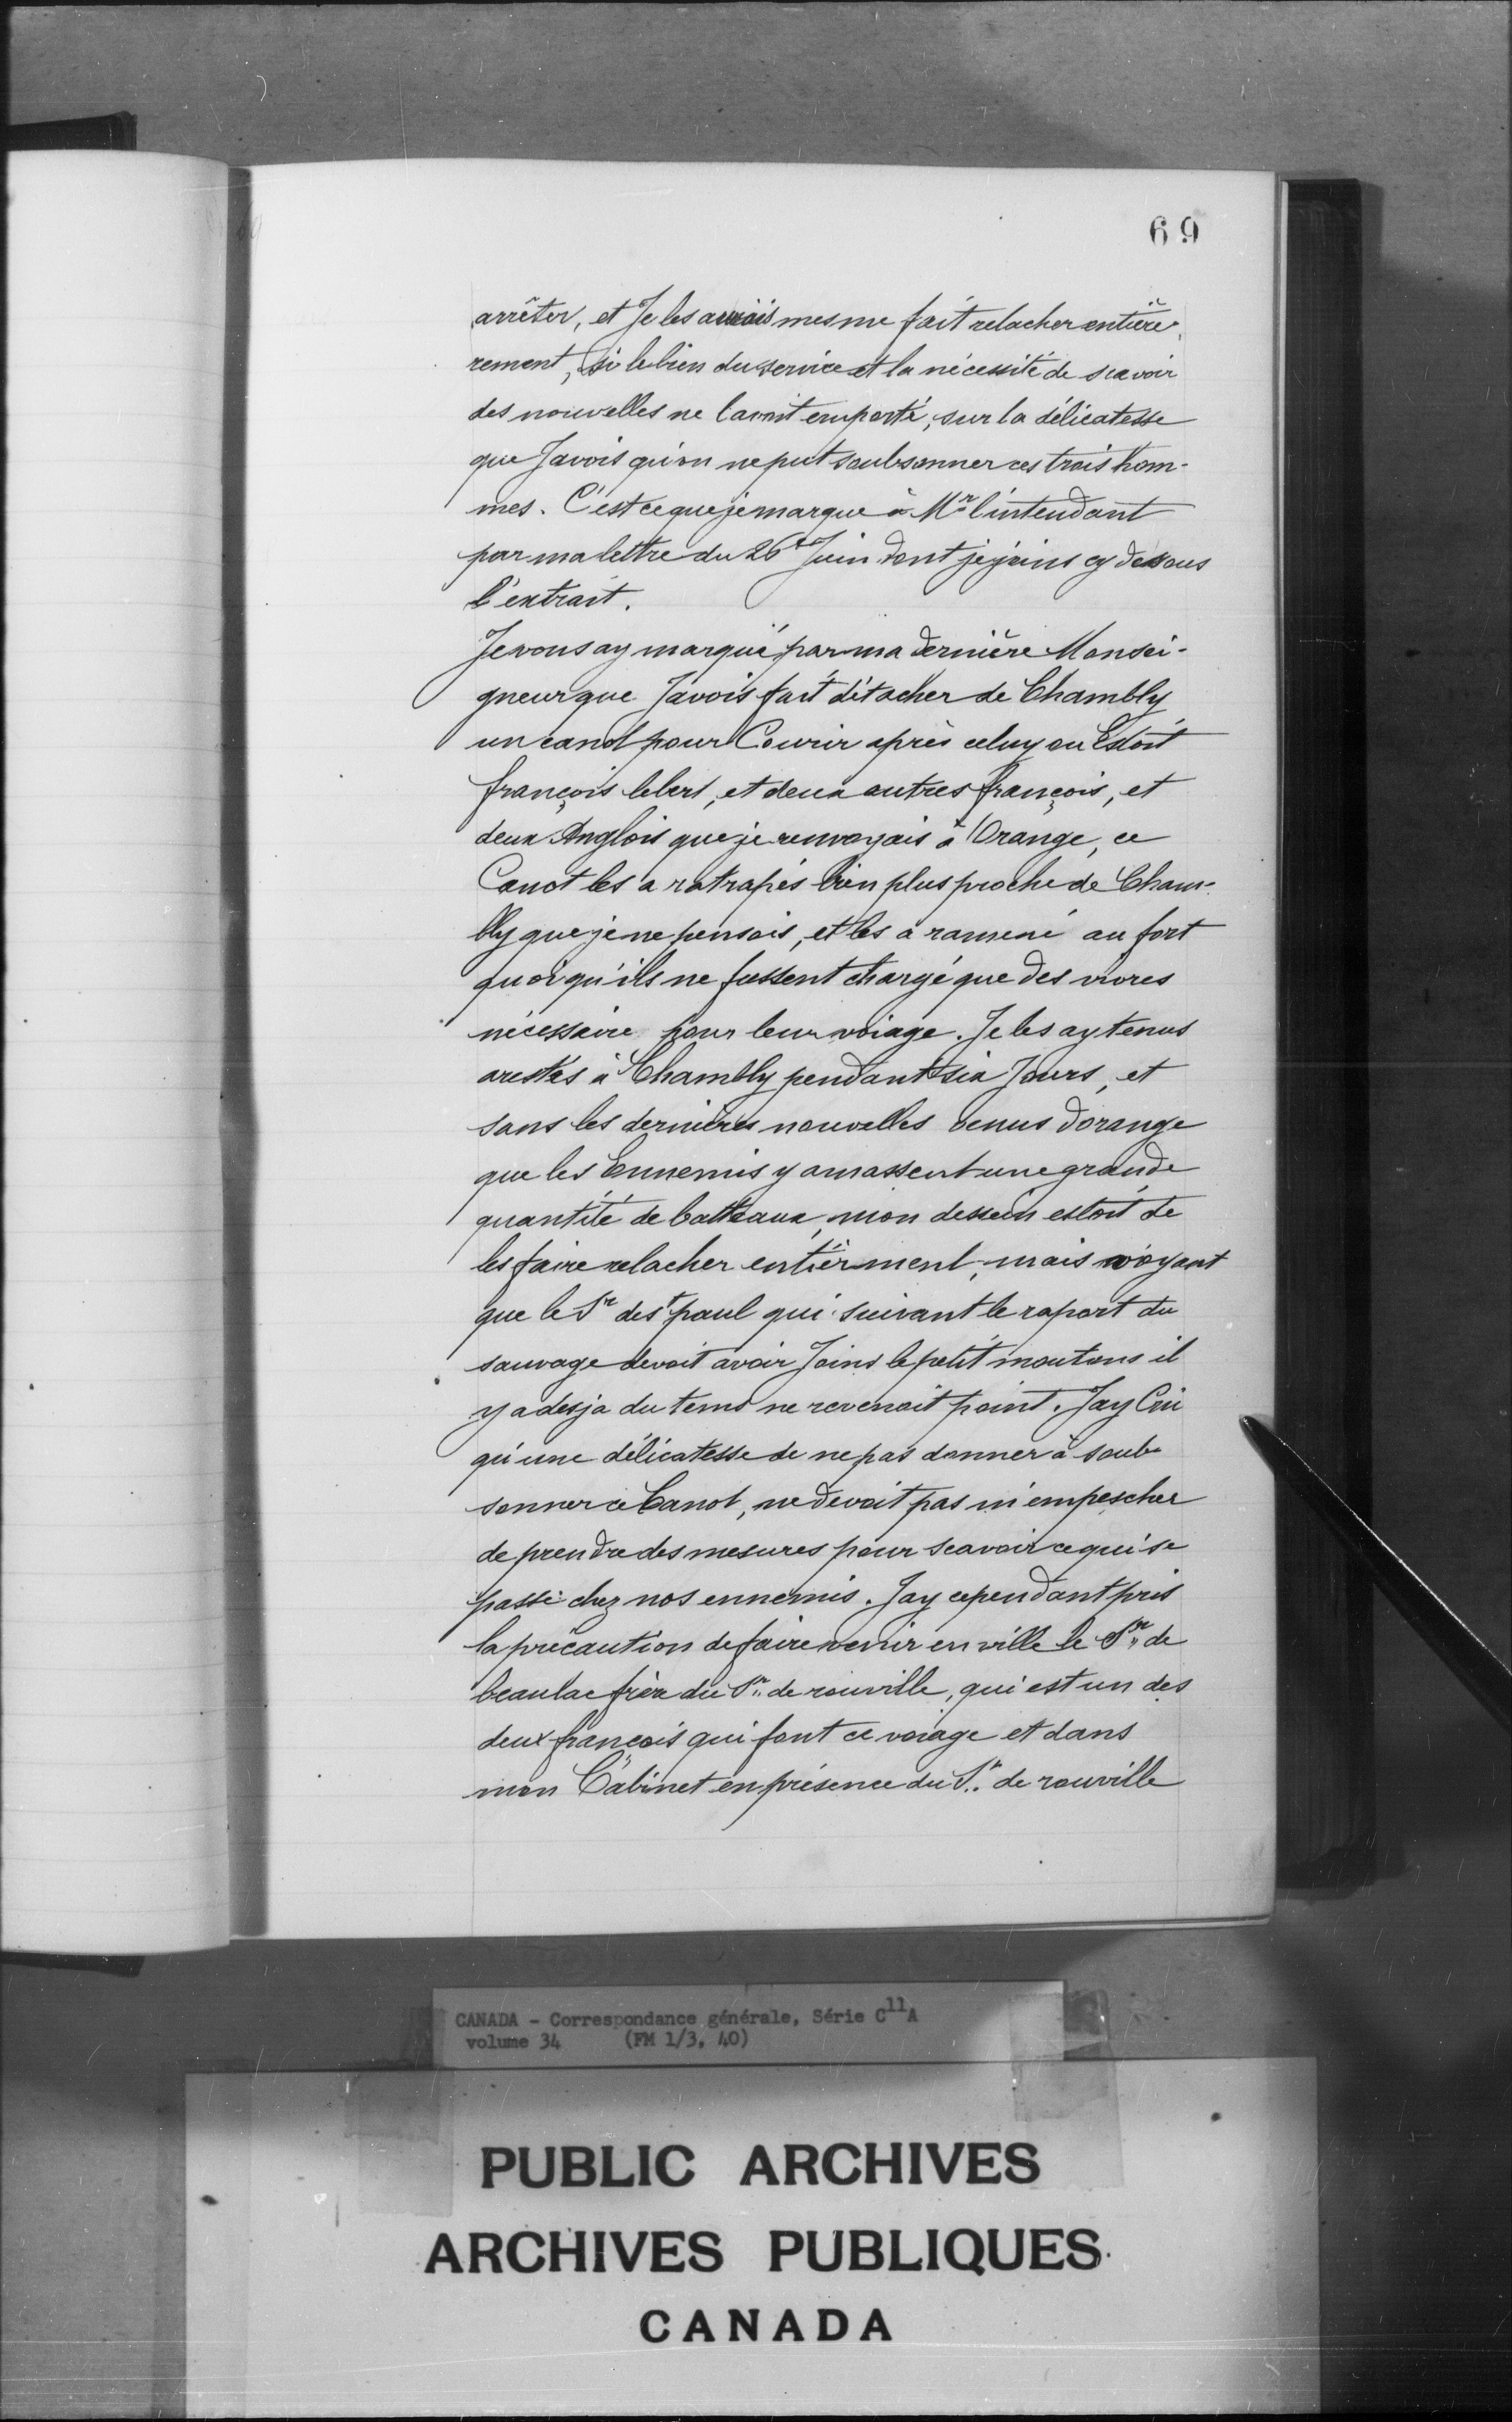 69
arrêter, et Je les aurais mesme fait relacher entière
rement, si le bien du service et la nécessité de scavoir
des nouvelles ne lavoit emporté, sur la délicatesse
que Javois qu'on ne put soubsonner ces trois hom-
mes. C'est ce que je marque à Mr l'intendant
par ma lettre du 26e Juin dont je joins cy dessous
l'extrait.
Je vous ay marqué par ma dernière Monsei-
gneur que Javois fait détacher de Chambly
un canot pour Courir après celuy ou Estoit
françois lebert, et deux autres françois, et
deux Anglois que je renvoyais à Orange, ce
Canot les a ratrapés bien plus proche de Cham-
bly que je ne pensois, et les a ramené au fort
quoi qu'ils ne fussent chargé que des vivres
nécessaire pour leur voiage. Je les ay tenus
arestés à Chambly pendant six Jours, et
sans les dernières nouvelles venus dorange
que les Ennemis y amassent une grande
quantité de batteaux, mon dessein estoit de
les faire relacher entièrment, mais voyant
que le Sr de st paul qui suivant le raport du
sauvage devoit avoir Joins le petit moutons il
y a desja du tems ne revenoit point. Jay Cru
qu'une délicatesse de ne pas donner à soub-
sonner ce Canot, ne devoit pas m'empescher
de prendre des mesures pour scavoir ce qui se
passe chez nos ennemis. Jay cependant pris
la précaution de faire venir en ville le Sr de
beaulac frère du Sr de rouville, qui est un des
deux françois qui font ce voiage et dans
mon Cabinet en présence du Sr de rouville
CANADA - Correspondance générale, Série C11A
volume 34 (FM 1/3, 40)
PUBLIC ARCHIVES
ARCHIVES PUBLIQUES
CANADA